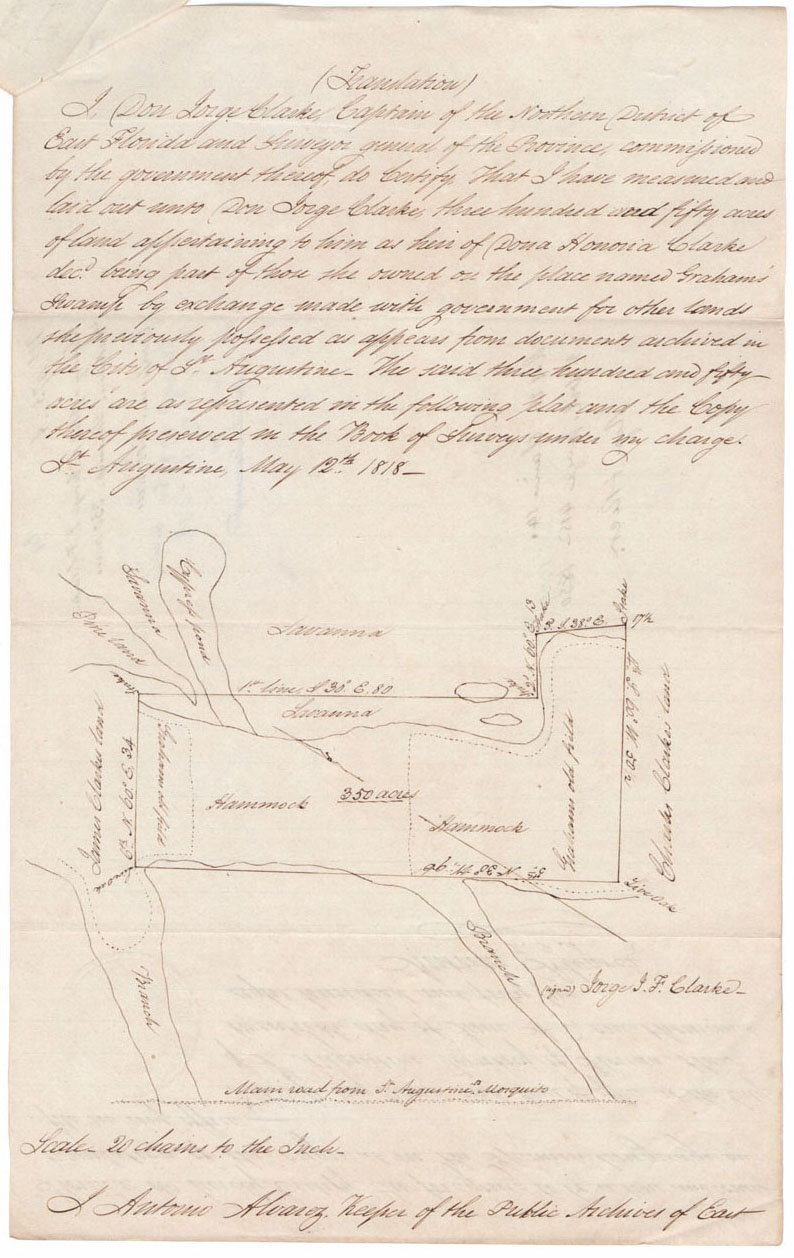 (Translation)
I, Don Jorge Clarke, Captain of the Northern District of
East Florida and Surveyor general of the Province, commissioned
by the government thereof do Certify, That I have measured and
laid out unto Don Jorge Clarke, three hundred and fifty acres
of land appertaining to him as heir of Dona Honoria Clarke
decd. being part of those she owned on the place named Grahams
Swamp by exchange made with government for other lands
she previously possessed as appears from documents archived in
the City of St. Augustine_ The said three hundred and fifty
acres are as represented in the following plat and the Copy
thereof preserved in the Book of Surveys under my charge.
St. Augustine, May 12th. 1818_
Cypress pond
Savanna
Pine land
Savanna
Stake
13
Stake
S 38° E.
17½
Stake
N 60° E.
1st. line, S 30° E. 80
Savanna
Stake
James Clarkes land
N. 60° E. 34
Grahams old field
Hammock
350 acres
Hammock
Grahams old field
Charles Clarkes land
N. 38 W. 96
Live Oak
Live Oak
Branch
Branch
(signed) Jorge J. F. Clarke_
Main road from St. Augustine to Mosquito
Scale_ 20 chains to the Inch_
I Antonio Alvarez, Keeper of the Public Archives of East